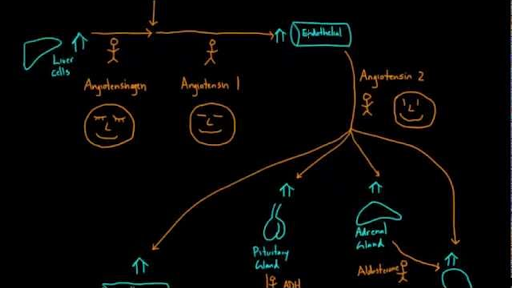 Endothelial
Liver
cells
Angiotensin 2
Angiotensinogen
Angiotensin 1
Adrenal
Gland
Pituitary
Gland
Aldosterone
ADH